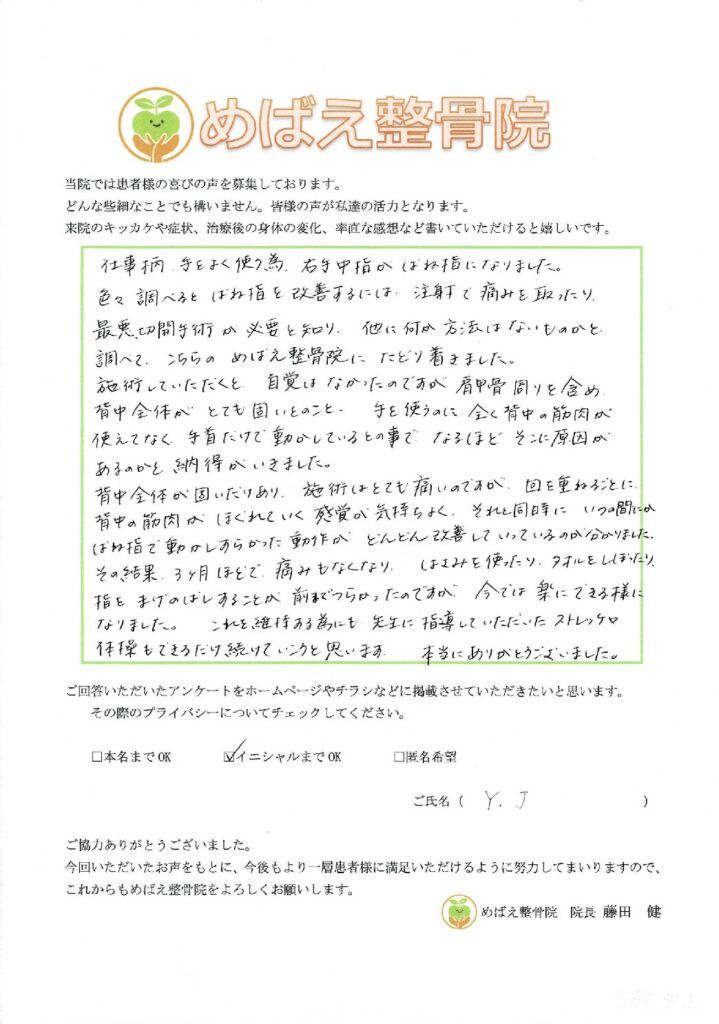 めばえ整骨院
当院では患者様の喜びの声を募集しております。
どんな些細なことでも構いません。皆様の声が私達の活力となります。
来院のキッカケや症状、治療後の身体の変化、率直な感想など書いていただけると嬉しいです。
仕事柄、手をよく使う為、右手中指がばね指になりました。
色々調べるとばね指を改善するには、注射で痛みを取ったり、
最悪、切開手術が必要と知り、他に何か方法はないものかと
調べて、こちらのめばえ整骨院にたどり着きました。
施術していただくと、自覚はなかったのですが肩甲骨周りを含め、
背中全体がとても固いとのこと、手を使うのに全く背中の筋肉が
使えてなく、手首だけで動かしているとの事で、なるほどそこに原因が
あるのかと納得がいきました。
背中全体が固いだけあり、施術はとても痛いのですが、回を重ねるごとに、
背中の筋肉がほぐれていく感覚が気持ちよく、それと同時に、いつの間にか
ばね指で動かしずらかった動作が、どんどん改善していっているのが分かりました。
その結果、3ヶ月ほどで、痛みもなくなり、はさみを使ったり、タオルをしぼったり、
指をまげのばしすることが前までつらかったのですが、今では楽にできる様に
なりました。これを維持する為にも先生に指導していただいたストレッチや
体操もできるだけ続けていこうと思います。本当にありがとうございました。
ご回答いただいたアンケートをホームページやチラシなどに掲載させていただきたいと思います。
その際のプライバシーについてチェックしてください。
□本名までOK ☑イニシャルまでOK □匿名希望
ご氏名（ Y. J ）
ご協力ありがとうございました。
今回いただいたお声をもとに、今後もより一層患者様に満足いただけるように努力してまいりますので、
これからもめばえ整骨院をよろしくお願いします。
めばえ整骨院 院長 藤田 健